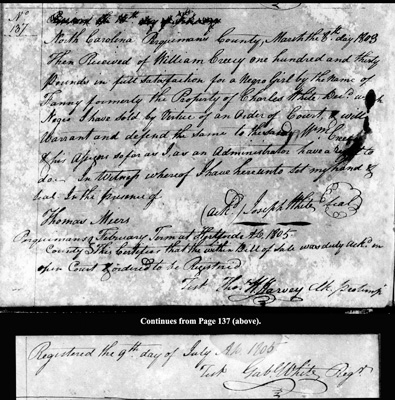 No
137
North Carolina Perquimans County, March the 8th day 1803
Then Received of William Creecy one hundred and thirty
Pounds in full Satisfaction for a Negro Girl by the name of
Fanny formerly the Property of Charles White Decd. which
Negro I have sold by Vertue of an Order of Court, & will
Warrant and defend the same to the said Wm Creecy
& his Assigns so far as I, as an Administrator have a right to
do. In Witness whereof I have hereunto Set my hand &
Seal In the presence of
Thomas Meers (ack.d) Joseph White Seal
Perquimans February Term at Hertford AD. 1805
County This Certifies that the within Bill of Sale was duly Ackd. in
open Court & ordered to be Registered
Test Thos. H Harvey Clk protemp
Continues from Page 137 (above).
Registered the 9th day of July AD. 1805
Test Gabl. White Regr